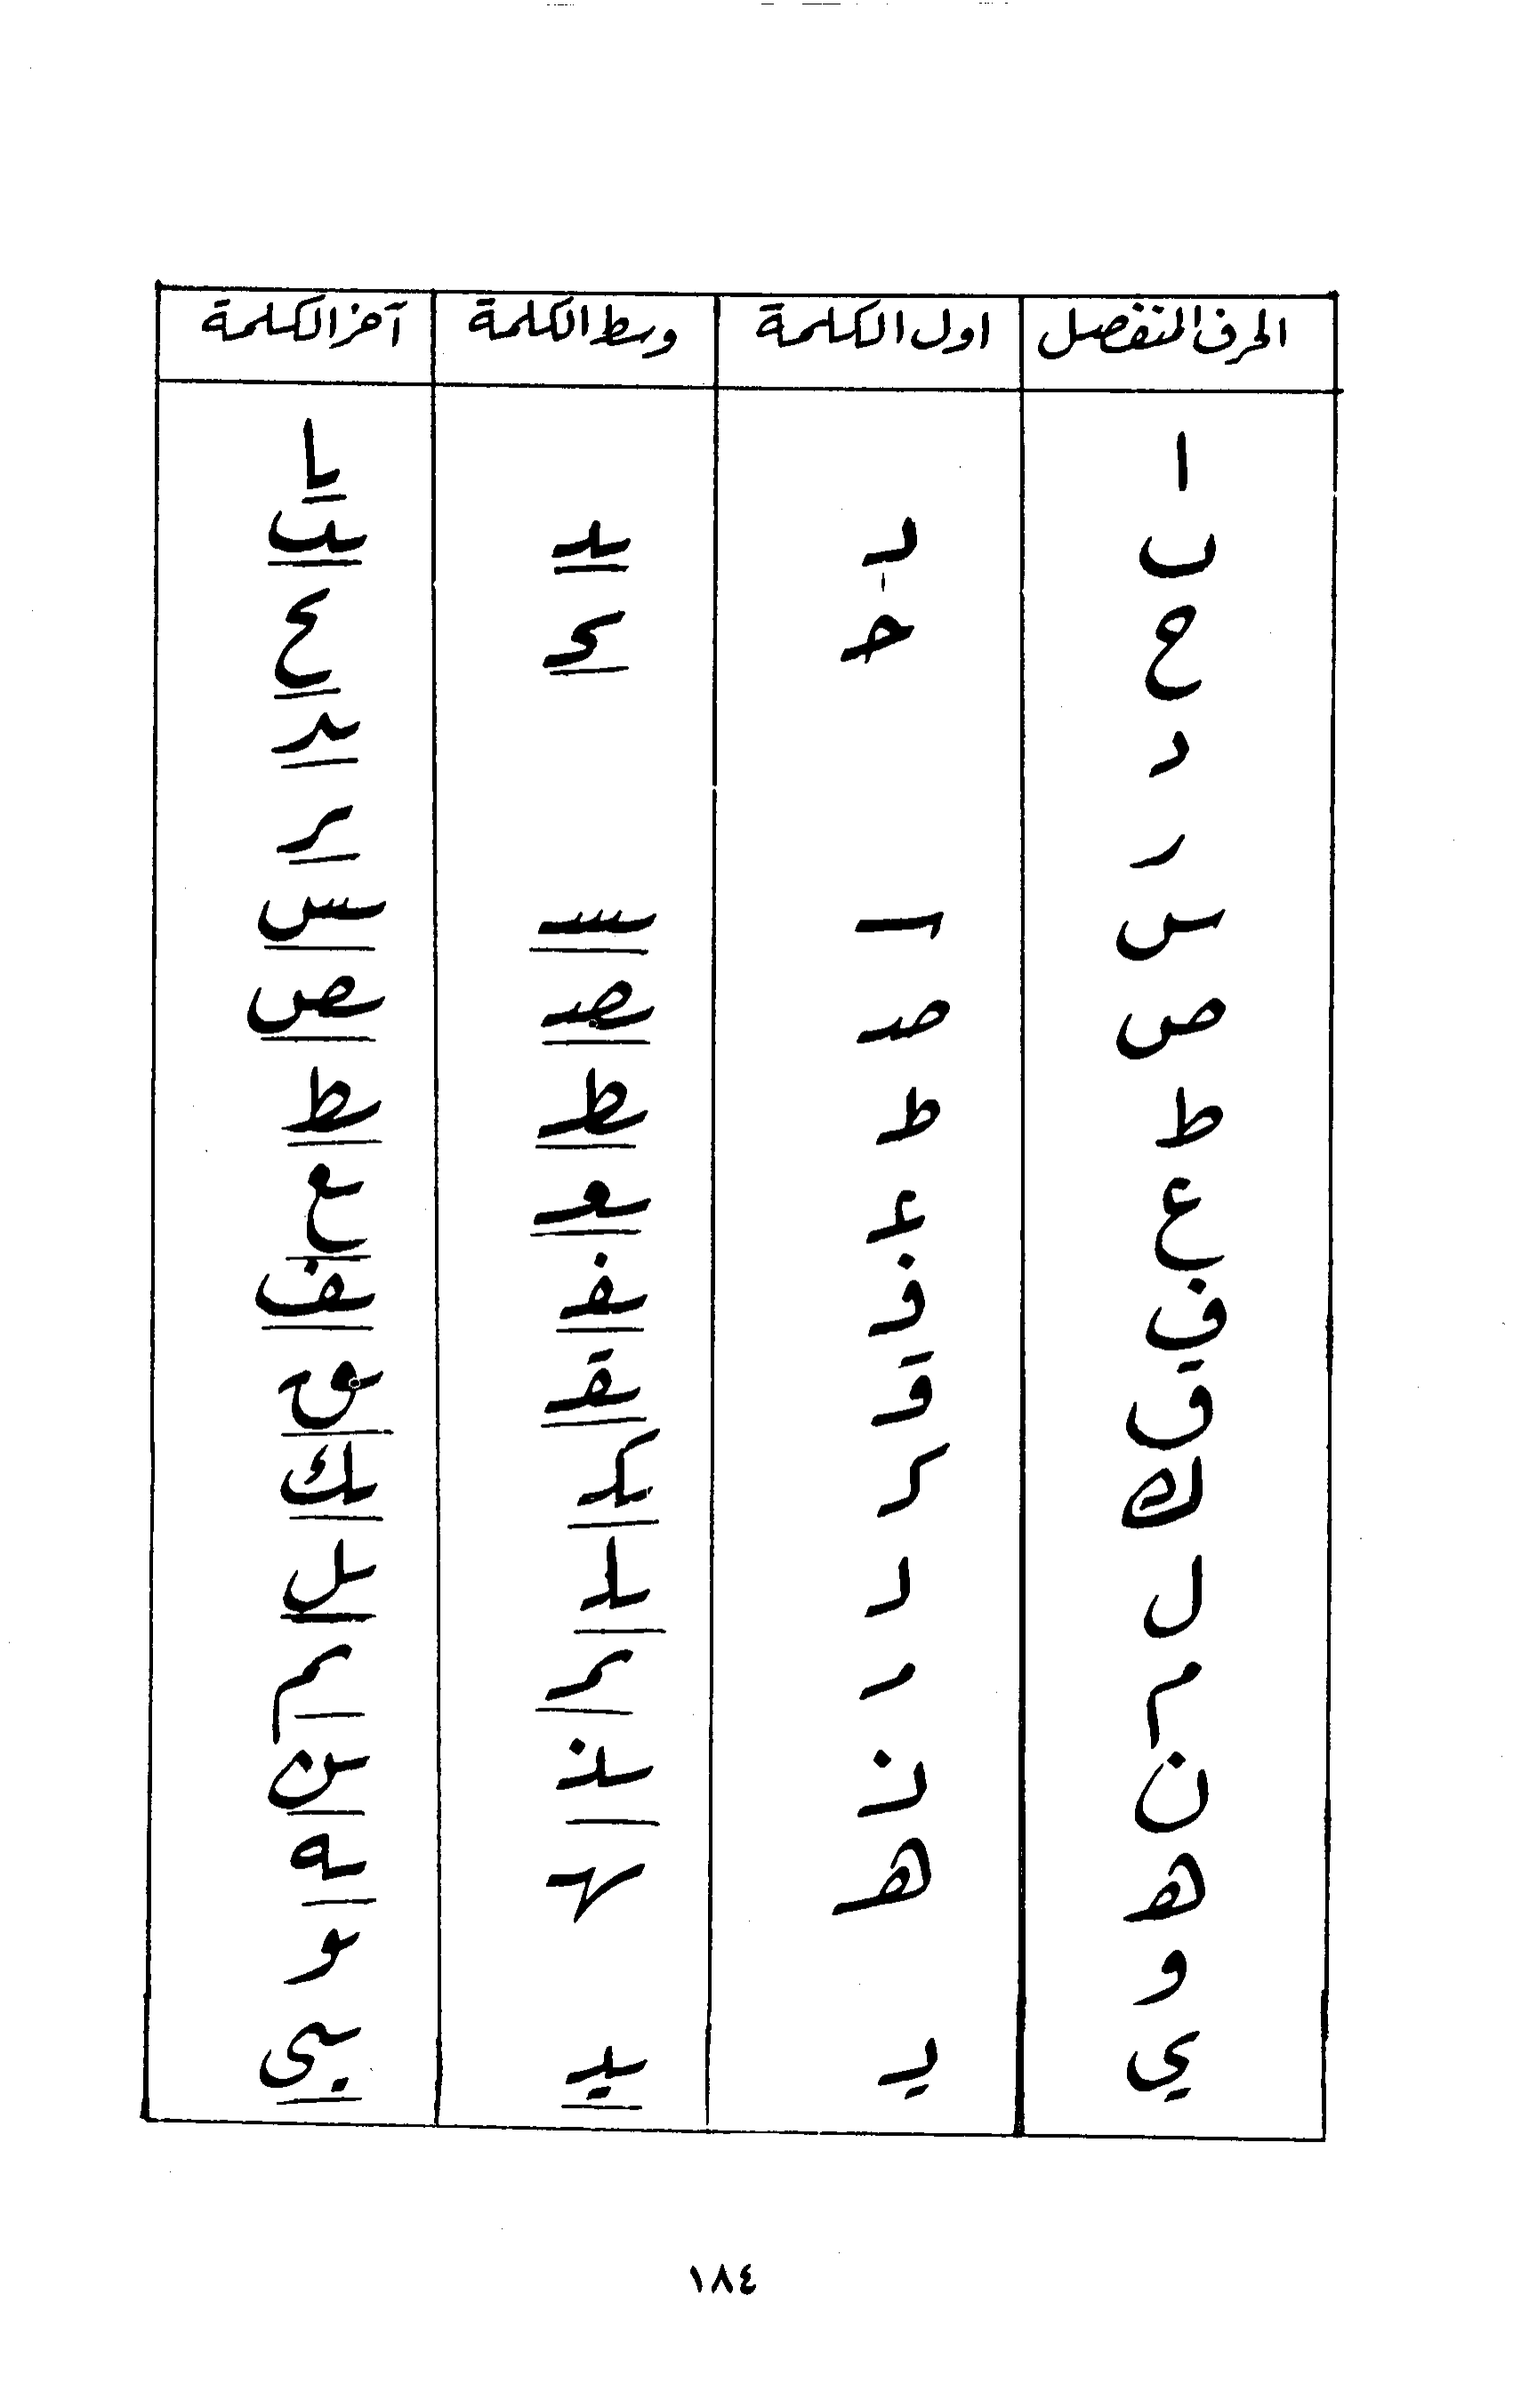 الحرف المنفصل اول الكلمة وسط الكلمة آخر الكلمة
ا ـا
ٮ ٮـ ـٮـ ـٮ
ح حـ ـحـ ـح
د ـد
ر ـر
س سـ ـسـ ـس
ص صـ ـصـ ـص
ط طـ ـطـ ـط
ع عـ ـعـ ـع
ف فـ ـفـ ـف
ق قـ ـقـ ـٯ
ك كـ ـكـ ـك
ل لـ ـلـ ـل
م مـ ـمـ ـم
ن نـ ـنـ ـن
هـ هـ ـهـ ـه
و ـو
ي يـ ـيـ ـي
١٨٤